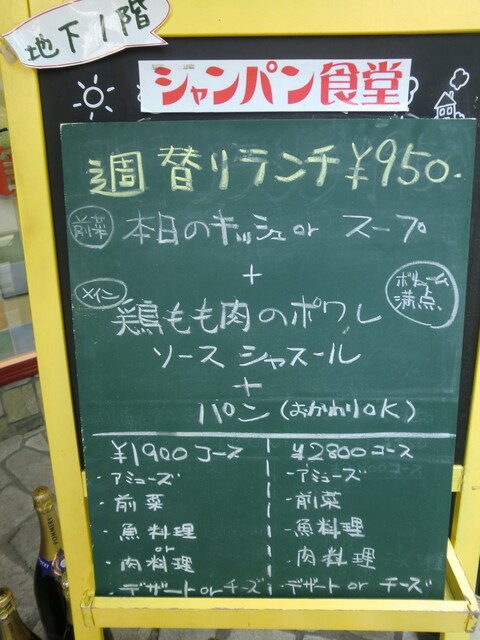 地下1階
シャンパン食堂
週替りランチ ¥950.
前菜 本日のキッシュ or スープ
+
メイン 鶏もも肉のポワレ
ボリューム満点
ソース シャスール
+
パン (おかわりOK)
¥1900コース
・アミューズ
・前菜
・魚料理
or
・肉料理
・デザート or チーズ
¥2800コース
・アミューズ
・前菜
・魚料理
・肉料理
・デザート or チーズ